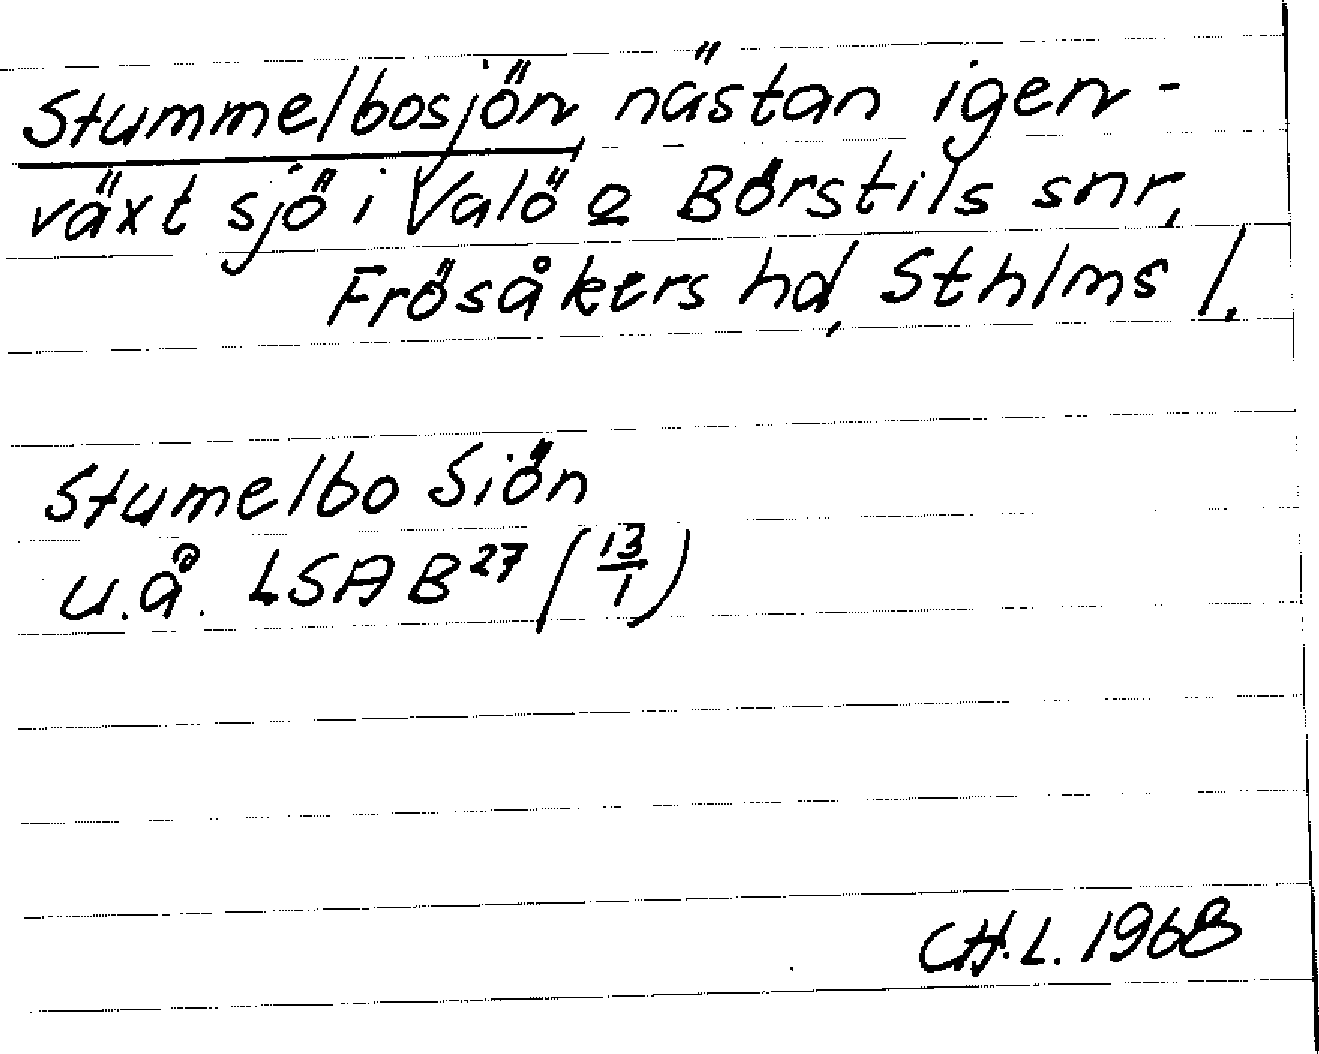 Stummelbosjön, nästan igen-
växt sjö i Valö o Börstils snr,
Frösåkers hd, Sthlms l.
Stumelbo Siön
u.å. LSA B27 (13/1)
CH.L. 1968